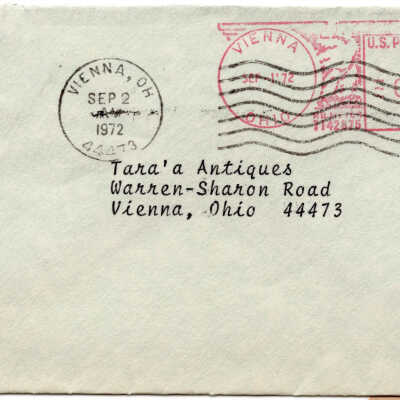 VIENNA, OH
SEP 2
AM
1972
44473
VIENNA
SEP -1'72
OHIO
U.S. P
1142875
Tara'a Antiques
Warren-Sharon Road
Vienna, Ohio 44473